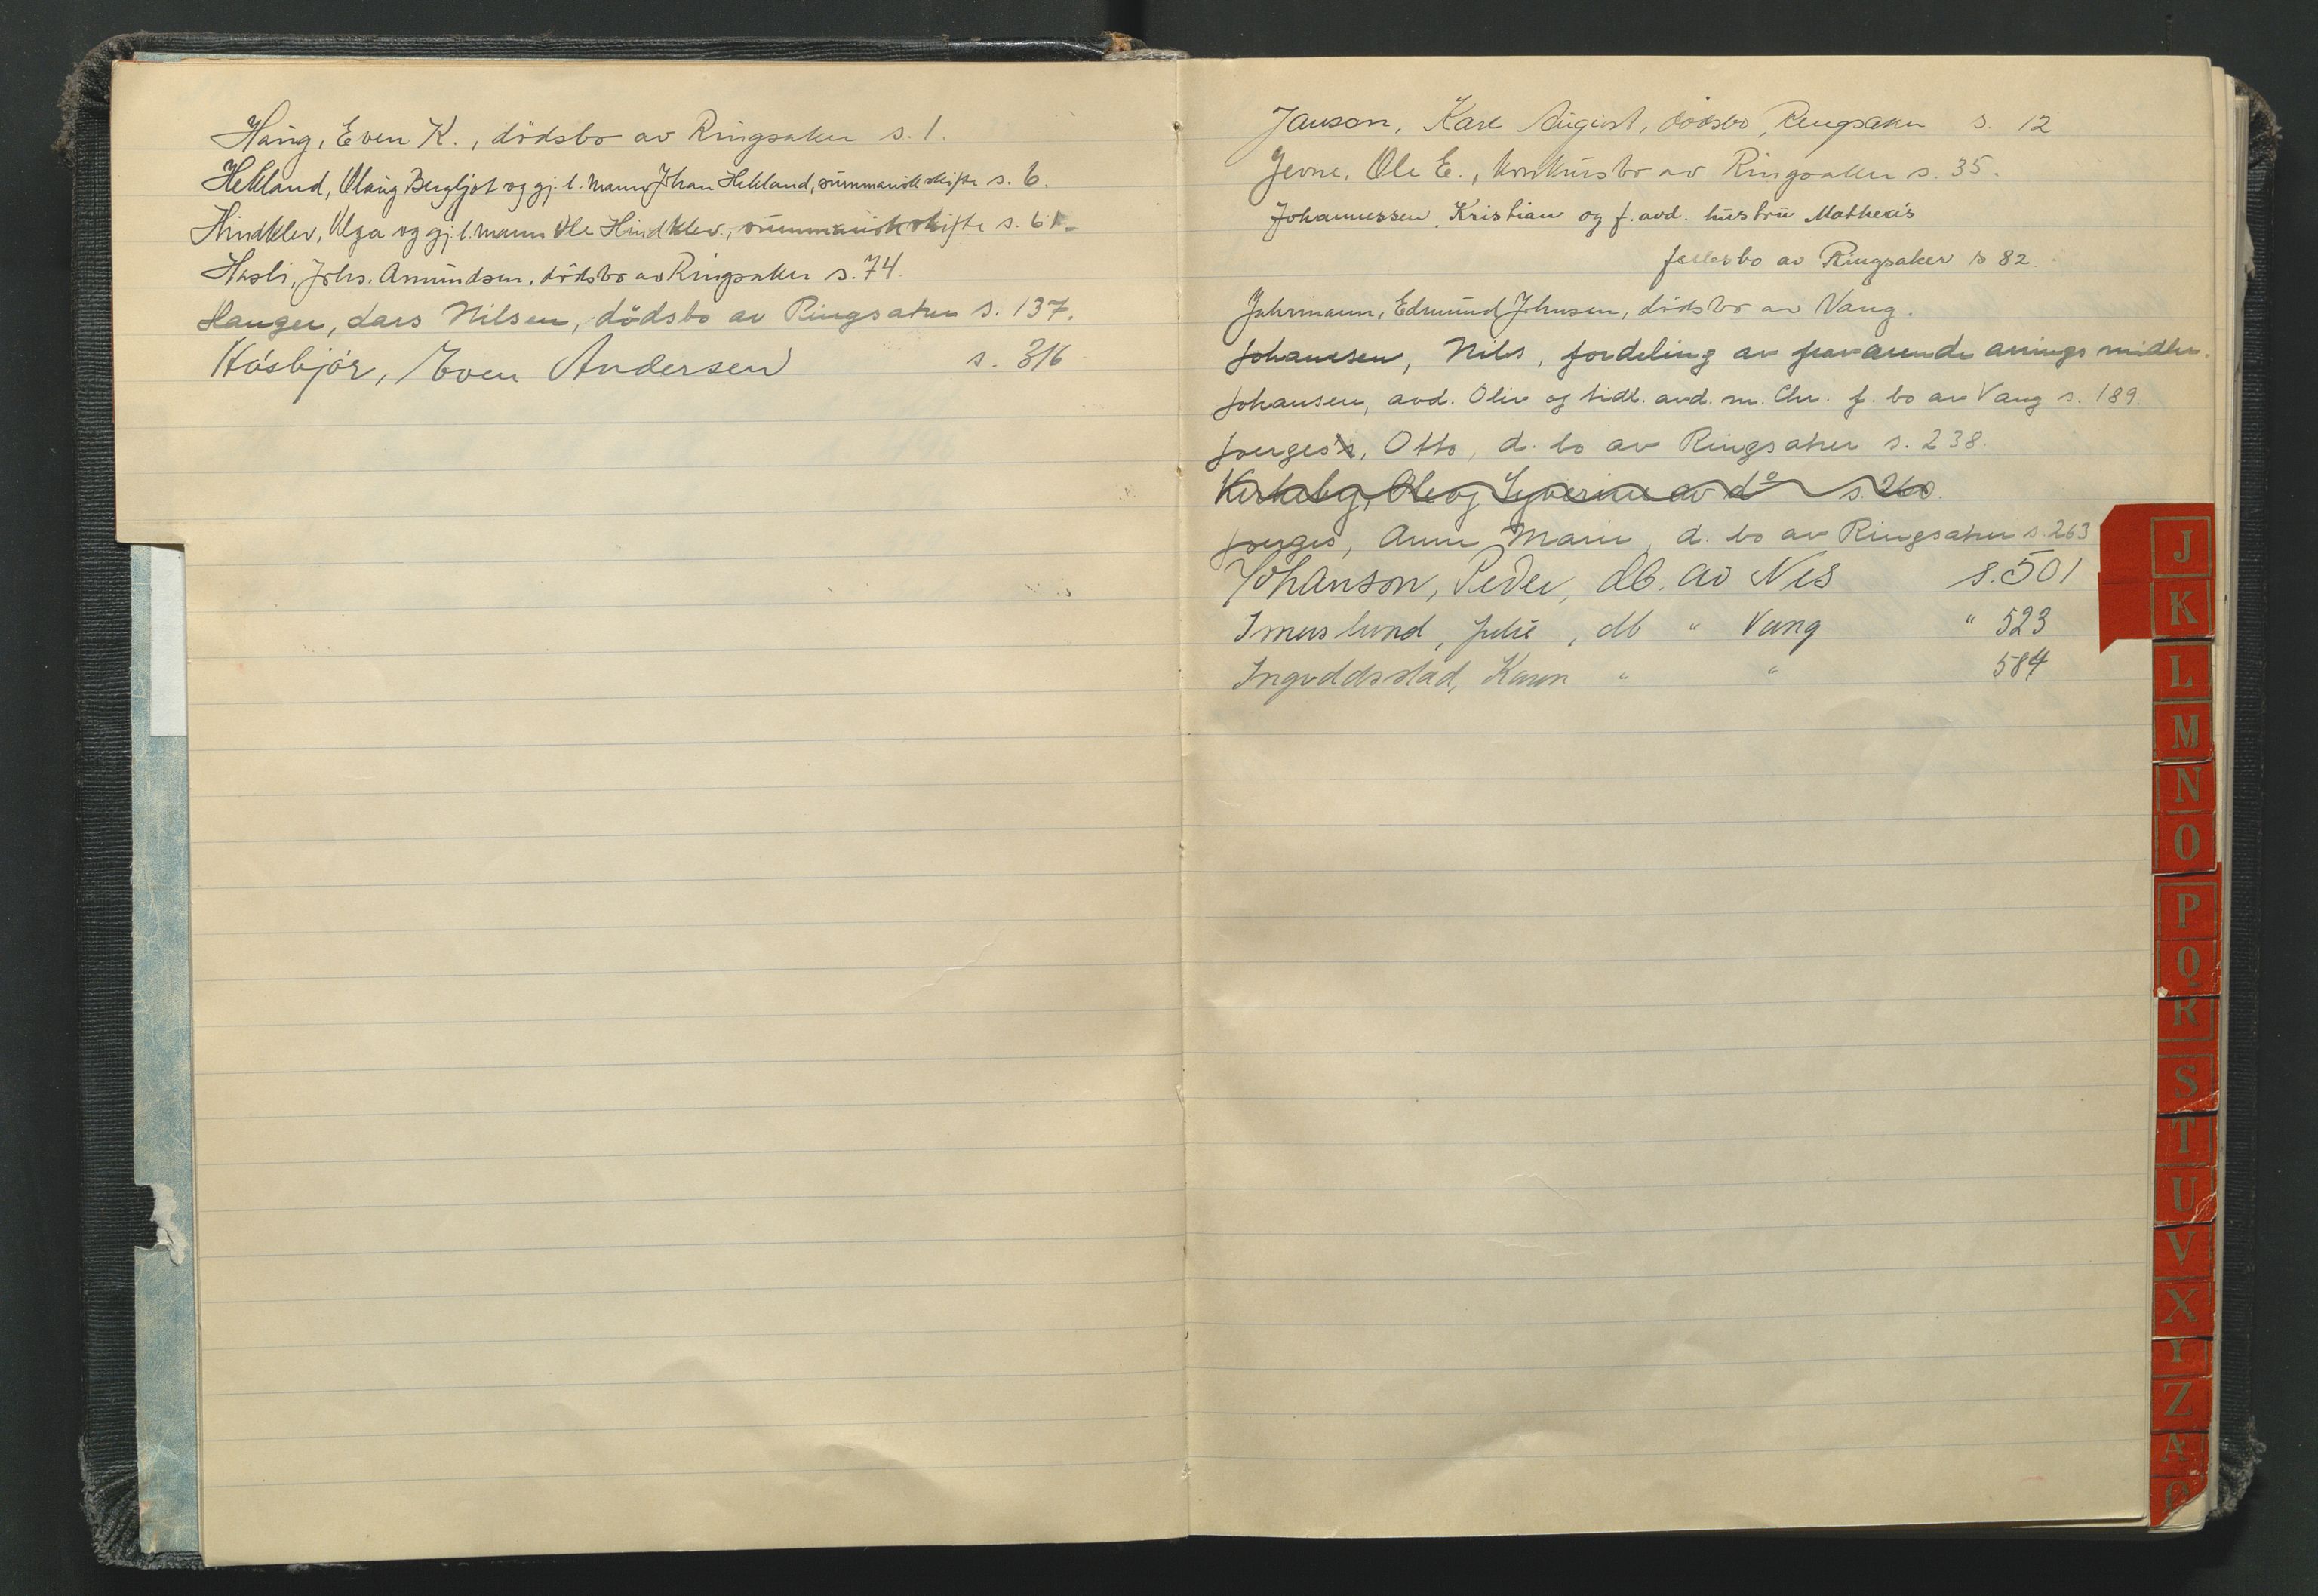 Haug, Even K., dödsbo av Ringsaker s. 1.
Hekland, Olaug Bergljot og gj. l. mann Johan Hekland, summarisk skifte s. 6.
Hindklev, Olga og gj. l. mann Ole Hindklev, summarisk skifte s. 61.
Hasli, Johs. Amundsen, dödsbo av Ringsaker s. 74.
Hanger, Lars Nilsen, dödsbo av Ringsaker s. 137.
Håsbjör, Even Andersen s. 316
Janson, Karl August, dödsbo, Ringsaker s. 12
Jevne, Ole E., konkursbo av Ringsaker s. 35.
Johannessen, Kristian og f. avd. hustru Mathea's
fellesbo av Ringsaker s 82.
Jahrmann, Edmund Johnsen, dödsbo av Vang.
Johansen, Nils, fordeling av fraværende arvings midler.
Johansen, avd. Oliv og tidl. avd. m. Chr. f. bo av Vang s. 189.
Joerges, Otto, d. bo av Ringsaker s. 238.
Ole og av do s. 260.
Joerges, Anne Marie, d. bo av Ringsaker s. 263
Johanson, Peder, db. av Nes s. 501
Imerslund, Julie, db " Vang " 523
Karen " " 584
J
K
L
M
N
O
P
Q
R
S
T
U
V
X
Y
Z